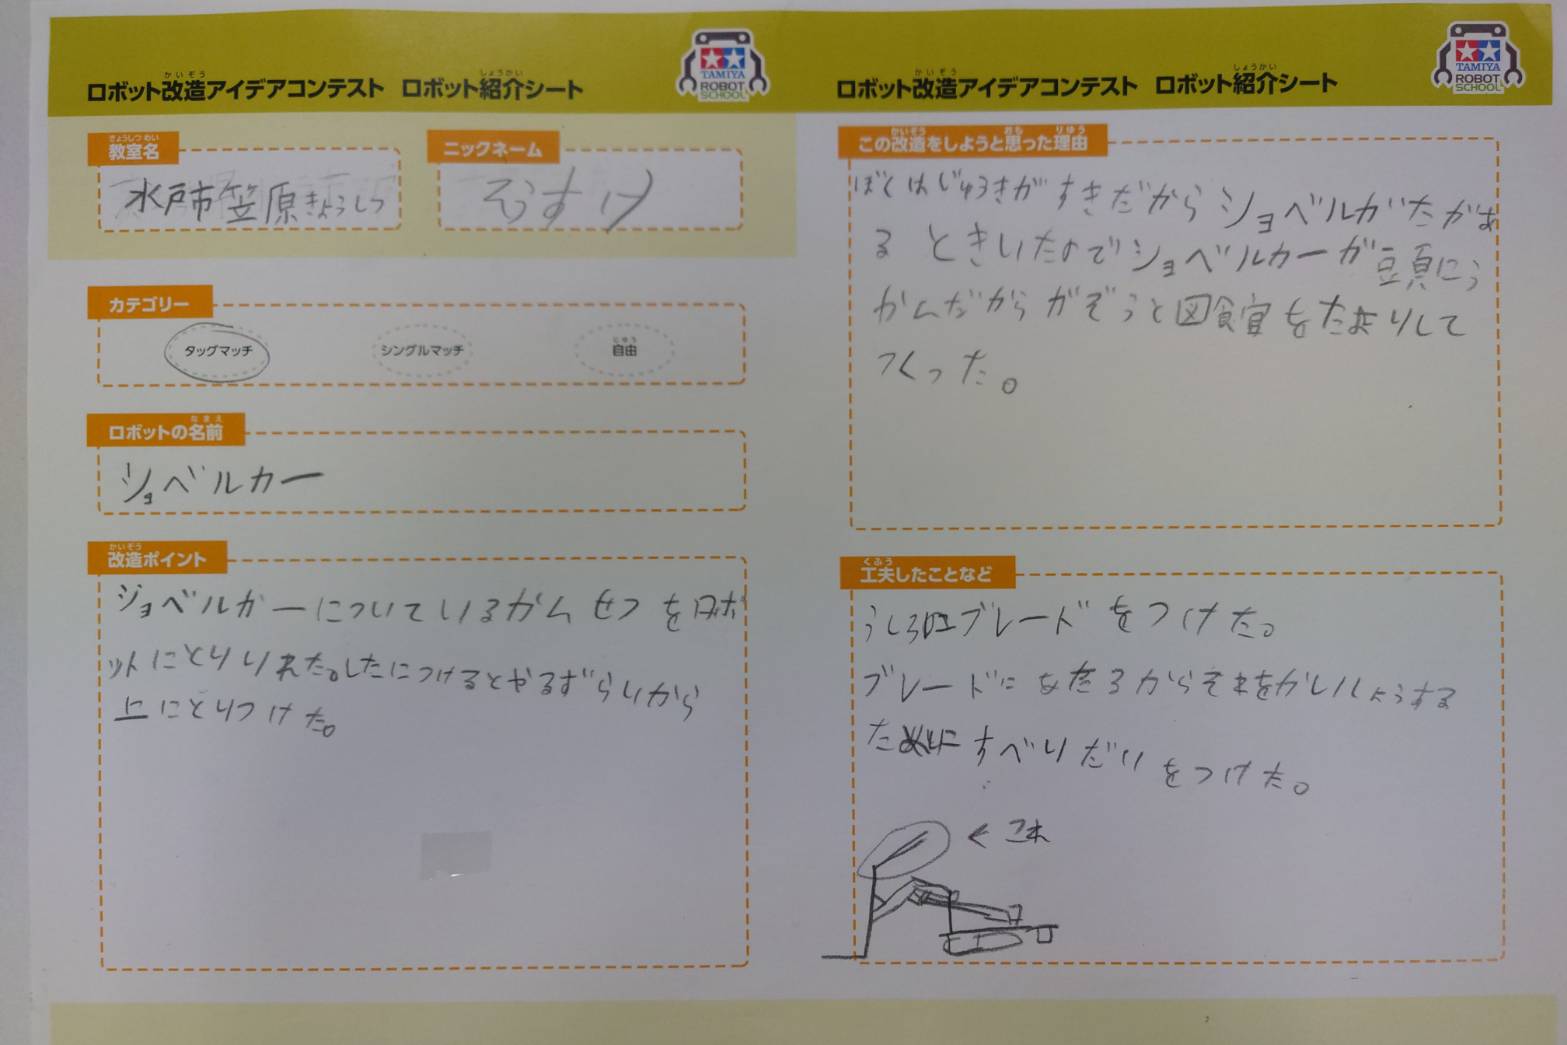 ロボット改造アイデアコンテスト ロボット紹介シート
かいぞう しょうかい
TAMIYA
ROBOT
SCHOOL
きょうしつめい
教室名
水戸市笠原きょうしつ
ニックネーム
そうすけ
カテゴリー
タッグマッチ
シングルマッチ
じゆう
自由
なまえ
ロボットの名前
ショベルカー
かいぞう
改造ポイント
ショベルカーについているかんせつをロボ
ットにとりいれた。したにつけるとやるずらいから
上にとりつけた。
ロボット改造アイデアコンテスト ロボット紹介シート
かいぞう しょうかい
TAMIYA
ROBOT
SCHOOL
かいぞう おも りゆう
この改造をしようと思った理由
ぼくはじゅうきがすきだからショベルがたがあ
るときいたのでショベルカーが頭にう
かんだからがぞうと図食官をたよりして
つくった。
くふう
工夫したことなど
うしろにブレードをつけた。
ブレードになだるからそれをかいしょうする
ためにすべりだいをつけた。
これ